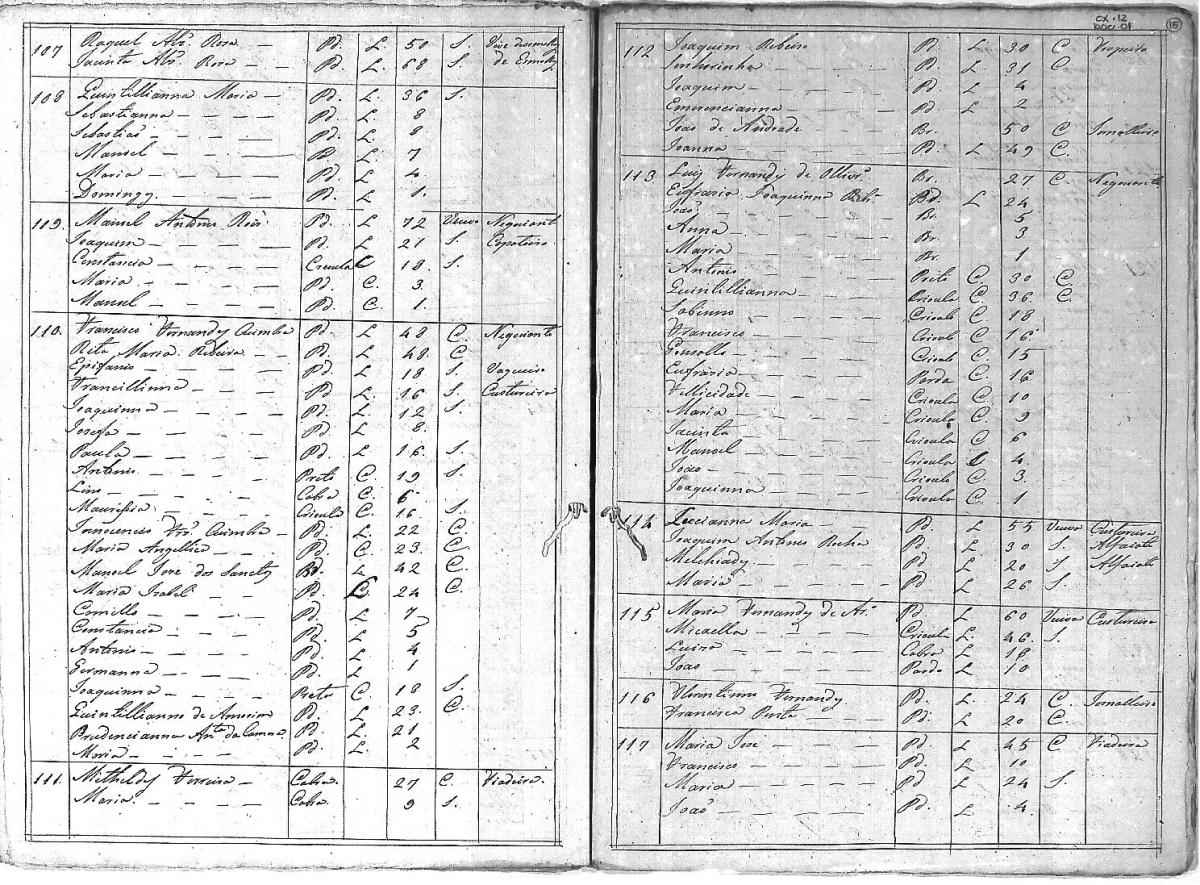 107 Raquel Alz. Rosa — Pd. L. 50 S. Vive de esmolla
Jacinta Alz. Rosa — Pd. L. 68 S. de Esmolla
108 Quintillianna Maria — Pd. L. 36 S.
Sebastianna — — — — Pd. L. 8
Sebastiaõ — — — — Pd. L. 8
Manoel — — — — Pd L 7
Maria — — — — Pd. L 4
Domingz — — — Pd. L 1.
119. Manoel Antonio Roiz Pd. L 72 Viuvo Negociante
Joaquim — — — — Pd. L 21 S.
Constancia — — — — Crioula C 18. S.
Maria — — — — Pd. C. 3
Manoel — — — — Pd. C. 1.
110. Francisco Fernandz Coimbra Pd. L 48 C. Negociante
Rita Maria Ribeira — Pd. L 48. C
Epifanio — — — — Pd. L 18 S. Vaqueiro
Francillinna — — — Pd. L 16 S. Custureira
Joaquinna — — — — Pd. L 12 S
Josefa — — — — Pd L 8.
Paula — — — — Pd. L 16. S.
Antonio — — — — Preto C. 19 S.
Lino — — — — Cabra C. 6
— — — Crioula C 16 S.
Innocencio Frz. Coimbra — Pd. L. 22 C.
Maria Angellica — — Pd. C. 23. C.
Manoel Jose dos Sanctos Bd. L 42 C.
Maria Izabel — — Pd. C. 24 C.
Camillo — — — — Pd. L 7
Constancia — — — Pd. L 5
Antonio — — — — Pd. L 4
Germanna — — — Pd. L 1
Joaquinna — — — — Preta C. 18 S.
Quintillianno de Amorim Pd. L 23. C.
Prudencianna Anta. da Camra. Pd. L. 21
Maria — — — — Pd. L. 2
111. Mithildz Ferreira — Cabra. 27 C. Fiadeira.
Maria. — — — — Cabra 9 S.
CX. 12
DOC. 01
15
112 Joaquim Ribeiro Pd. L 30 C
Senhorinha — — — Pd. L. 31 C.
Joaquim — — — — Pd L 4
Emerencianna — — — Pd L 2
Joaõ de Andrade Br. 50 C Jornalleiro
Joanna — — — — Pd. L 49 C.
113 Luiz Fernandz de Ollivra. Br. 27 C. Negociante
Eufrazia Joaquinna Rib. Pd. L 24
Joaõ — — — — Br. 5
Anna — — — — Br. 3
Maria — — — — Br. 1
Antonio — — — — Preto C. 30 C
Quintillianna — — — Crioula C. 36. C.
Sabinno — — — — Crioulo C 18
Francisco — — — — Crioulo C 16
Gonsallo — — — — Crioulo C. 15
Eufrazia — — — — Parda C. 16
Fellicidade — — — Crioula C. 10
Maria — — — — Crioula C. 9
Jacinta — — — — Crioula C 6
Manoel — — — — Crioulo C 4
Joaõ — — — — Crioulo C. 3.
Joaquinna — — — — Crioula C. 1
114 Luccianna Maria — — Pd. L 55 Viuva Custureira
Joaquim Antonio Rocha Pd. L 30 S. Alfaiate
Melchiadz. — — — Pd. L 20 S Alfaiate
Maria — — — — Pd L 26 S.
115 Maria Fernandz de As. Pd L 60 Viuva Custureira
Micaella — — — Crioula L. 46. S.
Luiza — — — — Cabra L 18
Joaõ — — — — Pardo L 10
116 Fernandz Pd. L 24 C Jornalleiro
Francisca Pinta — — Pd. L 20 C.
117 Maria Jose — — — Pd L 45 C Fiadeira
Francisco — — — Pd. L 10
Maria — — — — Pd L 24 S.
Joaõ — — — — Pd. L 4.